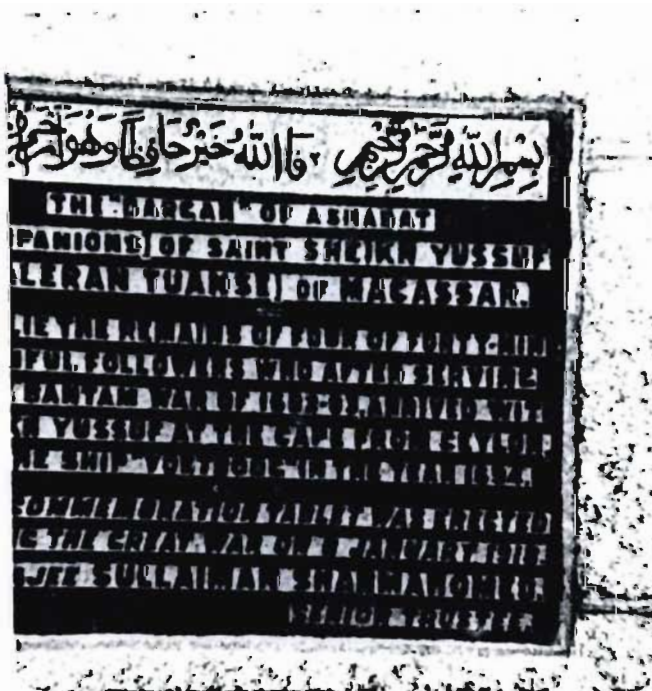 بِسْمِ اللّٰهِ الرَّحْمٰنِ الرَّحِيْمِ فَاللّٰهُ خَيْرٌ حَافِظًا وَهُوَ
THE "DARGAH" OF ASHABAT
PANIONS] OF SAINT SHEIKH YUSSUF
LERAN TUANSE] OF MACASSAR.
LIE THE REMAINS OF FOUR OF FORTY-NINE
FUL FOLLOWERS WHO AFTER SERVING
BANTAM WAR OF 1682-83, ARRIVED WIT
KH YUSSUF AT THE CAPE FROM CEYLON,
HE SHIP "VOETBOOG" IN THE YEAR 1694.
COMMEMORATION TABLET WAS ERECTED
G THE GREAT WAR ON 8 JANUARY 1918.
JEE SULLAIMAN SHAHMAHOMED.
SENIOR TRUSTEE.